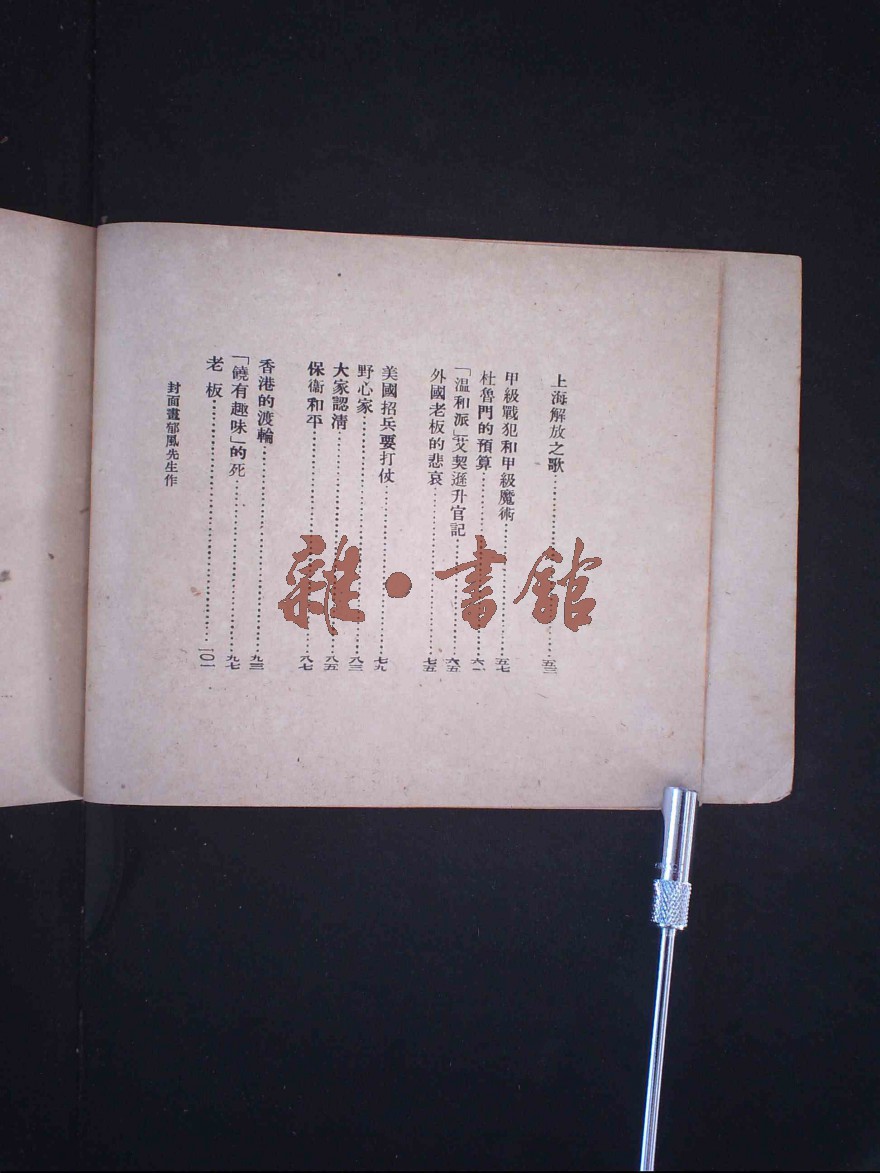 上海解放之歌……五三
甲級戰犯和甲級魔術……五七
杜魯門的預算……六一
「溫和派」艾契遜升官記……六五
外國老板的悲哀……七五
美國招兵要打仗……七九
野心家……八三
大家認清……八五
保衞和平……八七
香港的渡輪……九三
「饒有趣味」的死……九七
老板……一〇一
封面畫郁風先生作
雜·書館